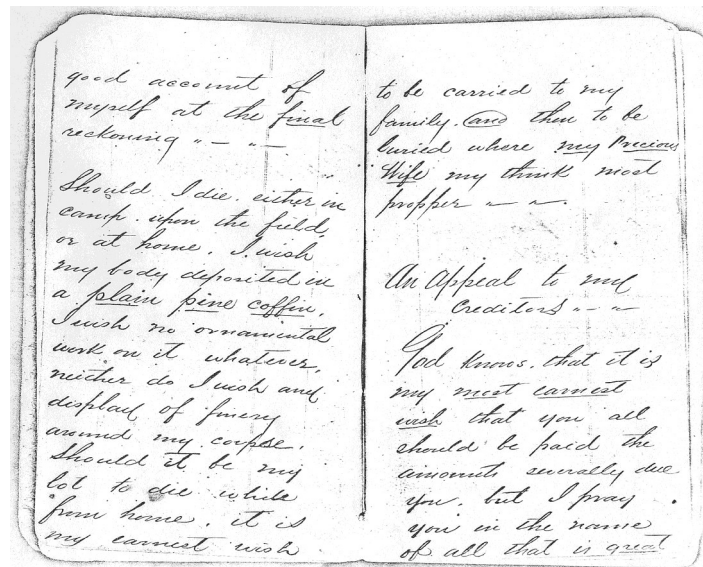 good account of
myself at the final
reckoning " — " —
Should I die either in
camp upon the field,
or at home, I wish
my body deposited in
a plain pine coffin.
I wish no ornamental
work on it whatever,
neither do I wish any
display of finery
around my corpse.
Should it be my
lot to die while
from home, it is
my earnest wish
to be carried to my
family. and then to be
buried where my Precious
Wife my think most
propper " — " .
An Appeal to my
Creditors " — "
God knows, that it is
my most earnest
wish that you all
should be paid the
amounts severally due
you, but I pray
you in the name
of all that is great